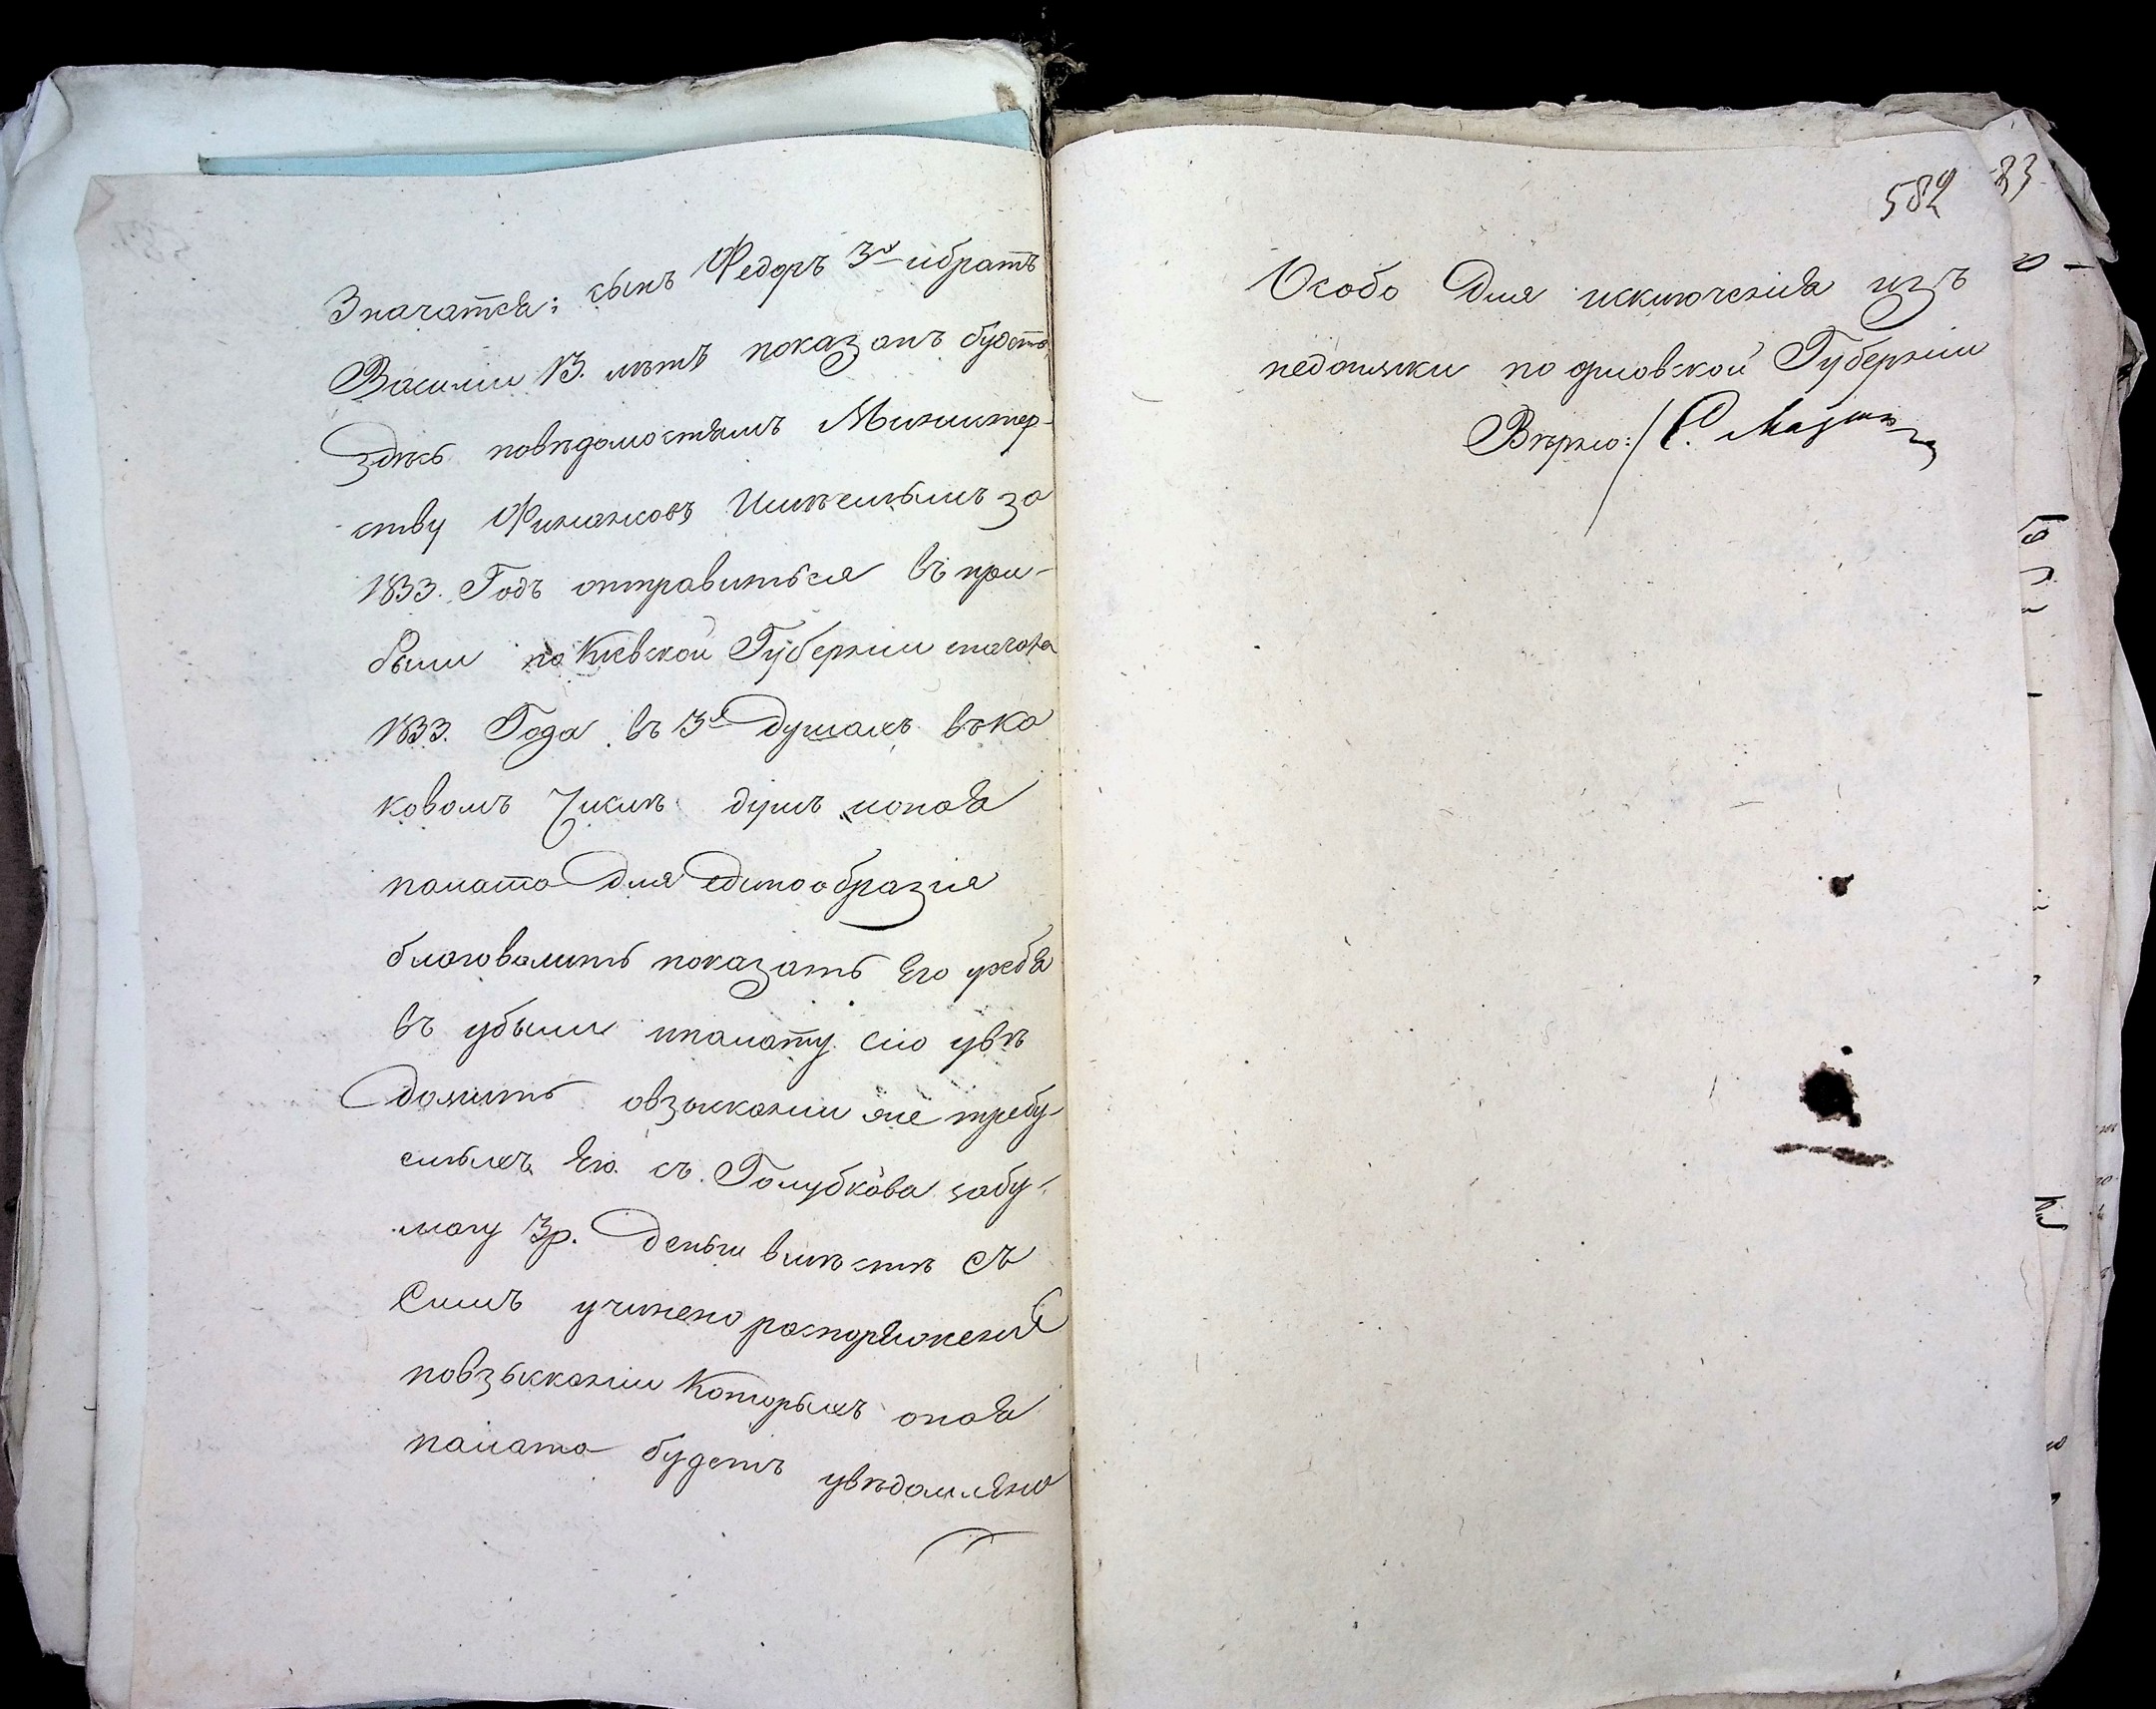 Значатся: сынъ Федоръ 3х ибратъ
Василии 13. лѣтъ показанъ будетъ
здѣсь повѣдомостямъ Министер-
ству Финансовъ Имѣемымъ за
1833. Годъ отправиться въ при-
были по Кіевской Губерніи сначала
1833. Года въ 3х душахъ въка
ковомъ Числѣ душъ ионая
палата для единообразія
благоволитъ показать Его усебя
въ убыли ипалату сію увѣ
домить овзысканіи же требу-
емыхъ Ею съ Голубкова забу-
магу 3р. Деньги вмѣстѣ съ
Симъ учинено распоряженіе
повзысканіи Которыхъ оная
палата будетъ увѣдомлено
582
Особо Для исключенія изъ
недоимки по орловской Губерніи
Вѣрно:/